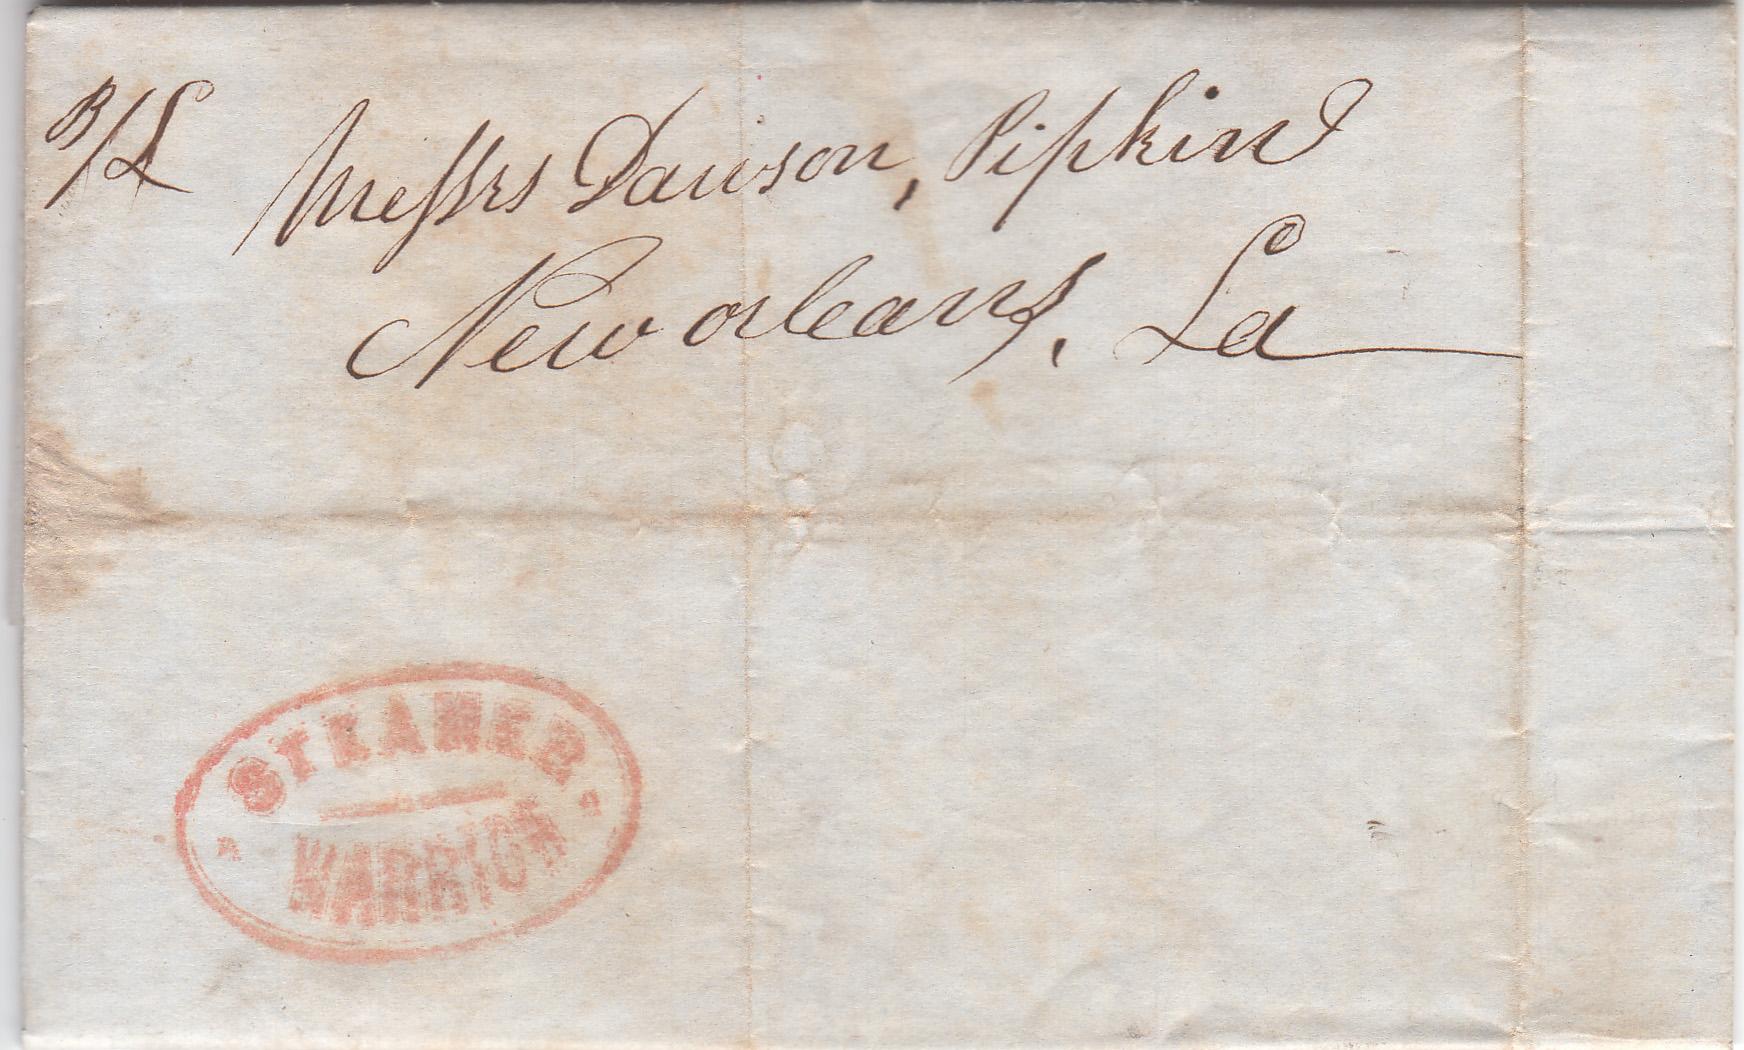 B/L
Messrs Dawson, Pipkin
New orleans, La
STEAMER
WARRIOR